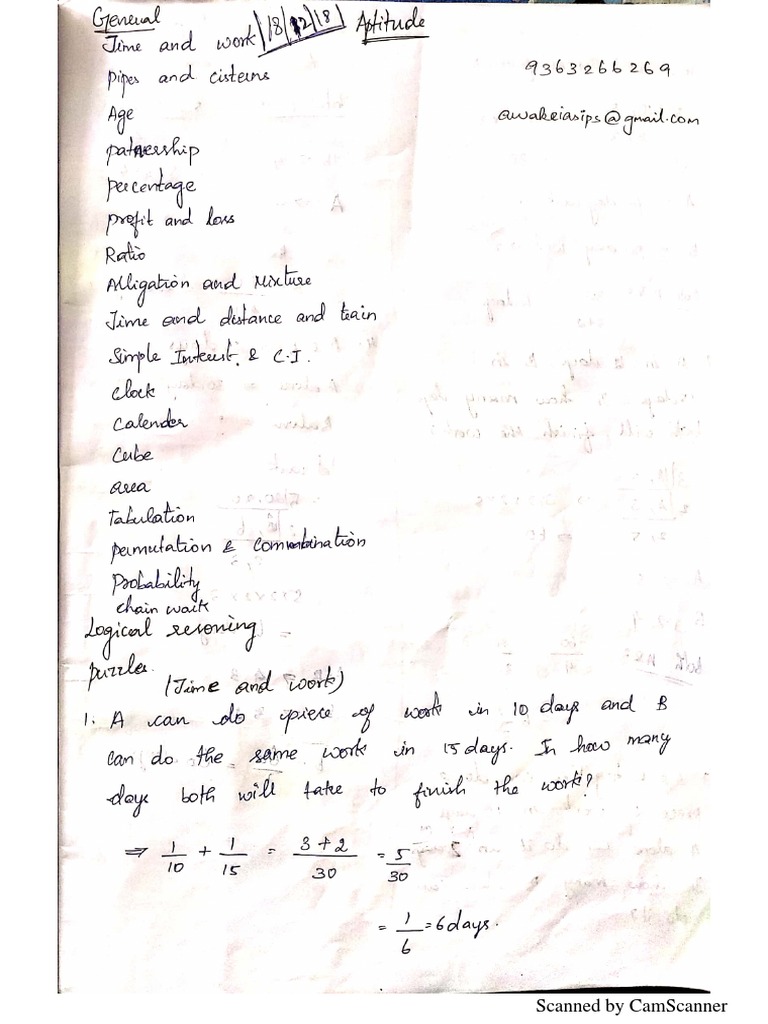 General 18/12/18 Aptitude
Time and work
pipes and cisterns
9363266269
Age
awakeiasips@gmail.com
patnership
percentage
profit and loss
Ratio
Alligation and Mixture
Time and distance and train
Simple Interest. & C.I.
clock
calender
cube
area
Tabulation
permutation & combination
probability
chain
Logical resoning
puzzles
(Time and work)
1. A can do piece of work in 10 days and B
can do the same work in 15 days. In how many
days both will take to finish the work?
⇒ 1/10 + 1/15 = 3+2/30 = 5/30
= 1/6 = 6 days.
Scanned by CamScanner